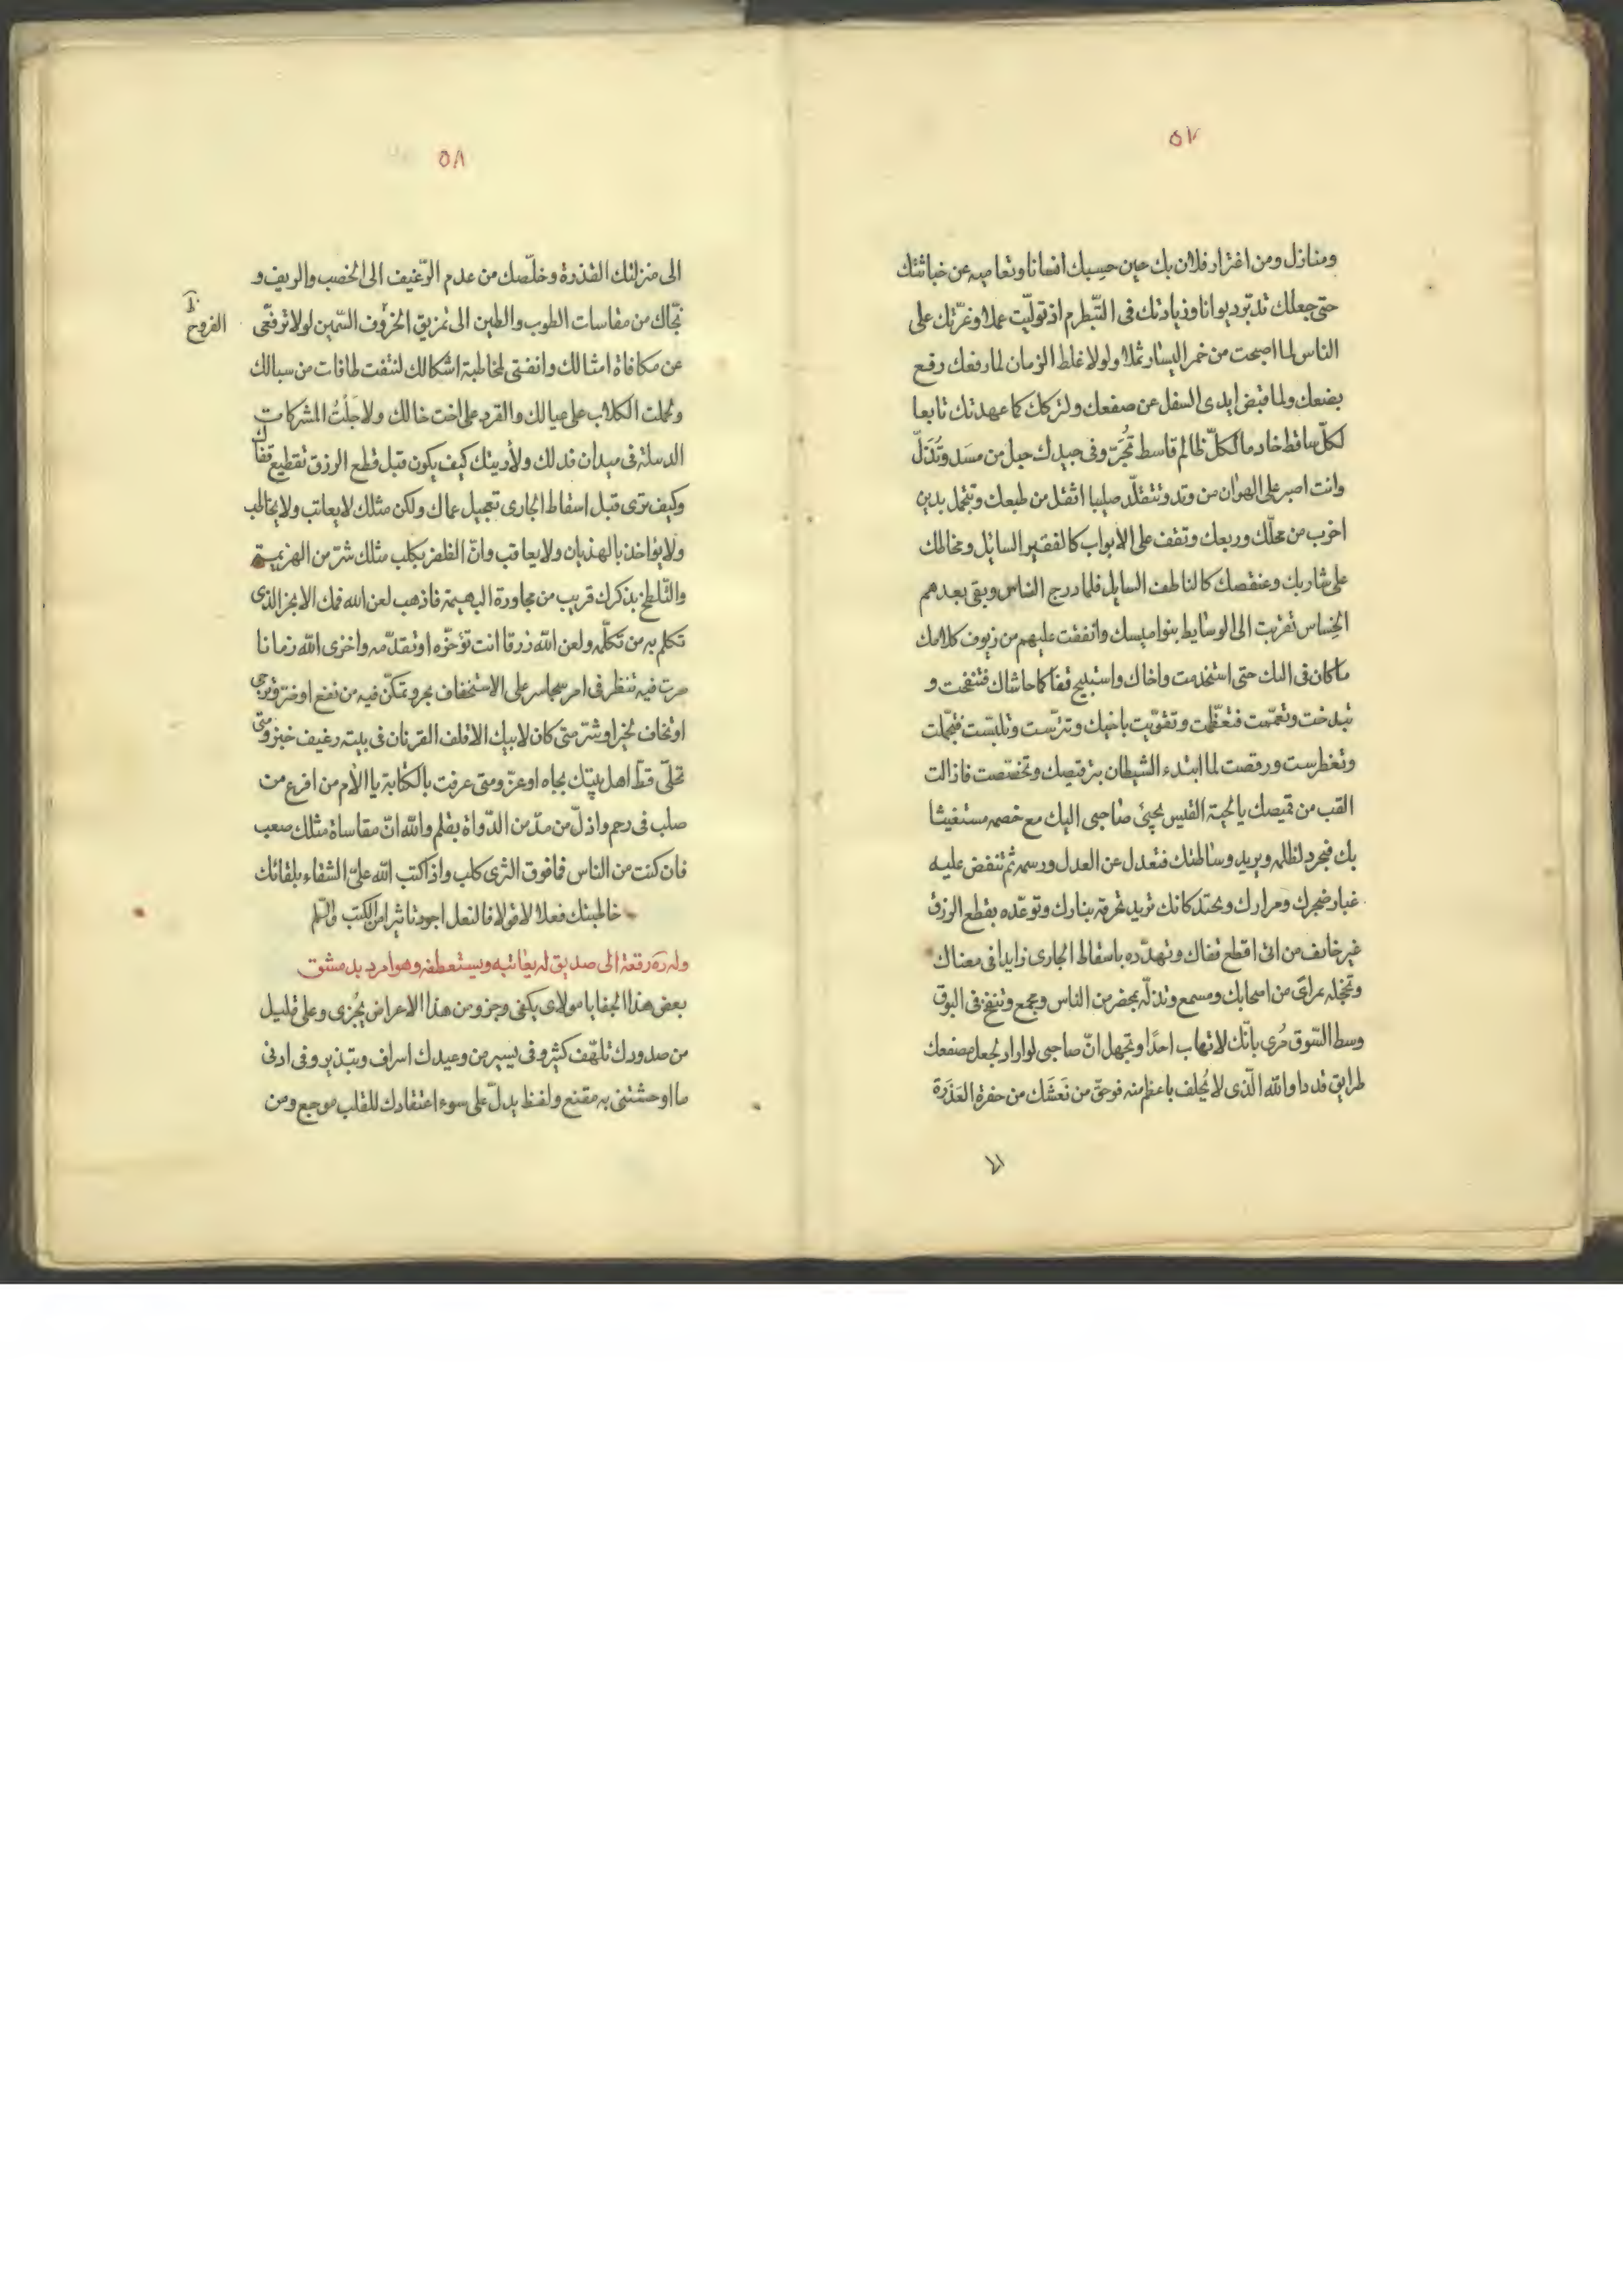 ٥٧
ومنازل ومن اغترار فلان بك حين حسبك انسانا وتعاميه عن خباثتك
حتى جعلك تدبّر ديوانا وزيادتك فى التبظرم اذ توليّت عملا وغرّتك على
الناس لما اصبحت من خمر اليسار ثملا ولولا غلط الزمان لما رفعك ورقع
بضعك ولما قبض ايدى السفل عن صفعك ولتركك كما عهدتك تابعا
لكلّ ساقط خادما لكلّ ظالم قاسط تُجَرّ وفى جيدك حبل من مسَد وتُذَلّ
وانت اصبر على الهوان من وتد وتتقلّد صليبا اثقل من طبعك وتتجمل بدين
اخرب من محلّك وربعك وتقف على الأبواب كالفقير السائل ومخاطك
على شاربك وعنفصك كالناطف السايل فلما درج الناس وبقى بعدهم
الخساس تقرّبت الى الوسايط بنواميسك وانفقت عليهم من زيوف كلامك
ما كان فى الىك حتى استخدمت واخاك واستبيح قفاكما حاشاك فتنفخت و
تبدخت وتعمّمت فتعظّمت وتقوّيت باخيك وتترّست وتلبّست فتجمّلت
وتغطرست ورقصت لما ابتدء الشيطان بترقيصك وتخصّصت فازالت
القب من قميصك يا لحية القتيس يجيئ صاحبى اليك مع خصمه مستغيثا
بك فيجرد لظلمه ويريد وساطتك فتعدل عن العدل ورسمه ثم تنفض عليه
غبار ضجرك ومرارك وتحتد كانك تريد تحرقه بنارك وتوعّده بقطع الرزق
غير خائف من انى اقطع قفاك وتهدّده باسقاط الجارى زايدا فى معناك
وتخجله بمراى من اصحابك ومسمع وتذلّه بمحضر من الناس ومجمع وتنفخ فى البوق
وسط السّوق حُرى بانّك لا تهاب احدًا وتجهل انّ صاحبى لو اراد لجعل بصفعك
طرايق قددا والله الّذى لا يُحلف باعظم منه فوحقّ من نَعَشَك من حفرة العَذَرة
الى
٥٨
الى منزلتك القذرة وخلّصك من عدم الرّغيف الى الخصب والريف و
نجّاك من مقاسات الطوب والطين الى تمزيق الخرؤف السّمين لولا ترفّعى
الفروخ
عن مكافاة امثالك وانفتى لمخاطبة اشكالك لنتفت طاقات من سبالك
وحملت الكلاب على عيالك والقرد على اخت خالك ولاجَلْتُ المشركات
الدسلة فى ميدان قذلك ولأريتك كيف يكون قبل قطع الرزق تقطيع قفاك
وكيف ترى قبل اسقاط الجارى تعجيل عماك ولكن مثلك لا يعاتب ولا يخاطب
ولا يؤاخذ بالهذيان ولا يعاقب وانّ الظفر بكلب مثلك شرّ من الهزيمة
والتّلطخ بذكرك قريب من مجاورة البهيمة فاذهب لعن الله فمك الابخر الذى
تكلم به من تكلّمه ولعن الله رزقا انت تؤخّره او تقدّمه واخزى الله زمانا
صرت فيه تنظر فى امر وتتمكّن فيه من نفع او ضرّ وترجى
او تخاف لخير او شرّ متى كان لابيك الاقلف القرنان فى بيته رغيف خبز ومتى
تحلّى قطّ اهل بيتك بجاه او عزّ ومتى عرفت بالكتابة يا الأم من افرغ من
صلب فى رحم واذلّ من مدّ من الدّواة بقلم والله انّ مقاساة مثلك صعب
فان كنت من الناس فما فوق الثرى كلب واذا كتب الله علىّ الشقاء بلقائك
خاطبتك فعلا لا قولا فالنعل اجود تاثيرا من الكتب والسّلم
وله رَه رقعة الى صديق له يعاتبه ويستعطفه وهو امرد بدمشق
بعض هذا الجفا يا مولاى يكفى وجزو من هذا الاعراض يُجْزى وعلى قليل
من صدودك تلهّف كثير وفى يسير من وعيدك اسراف وتبذير وفى ادنى
ما اوحشتنى به مقنع ولفظ يدلّ على سوء اعتقادك للقلب موجع ومن